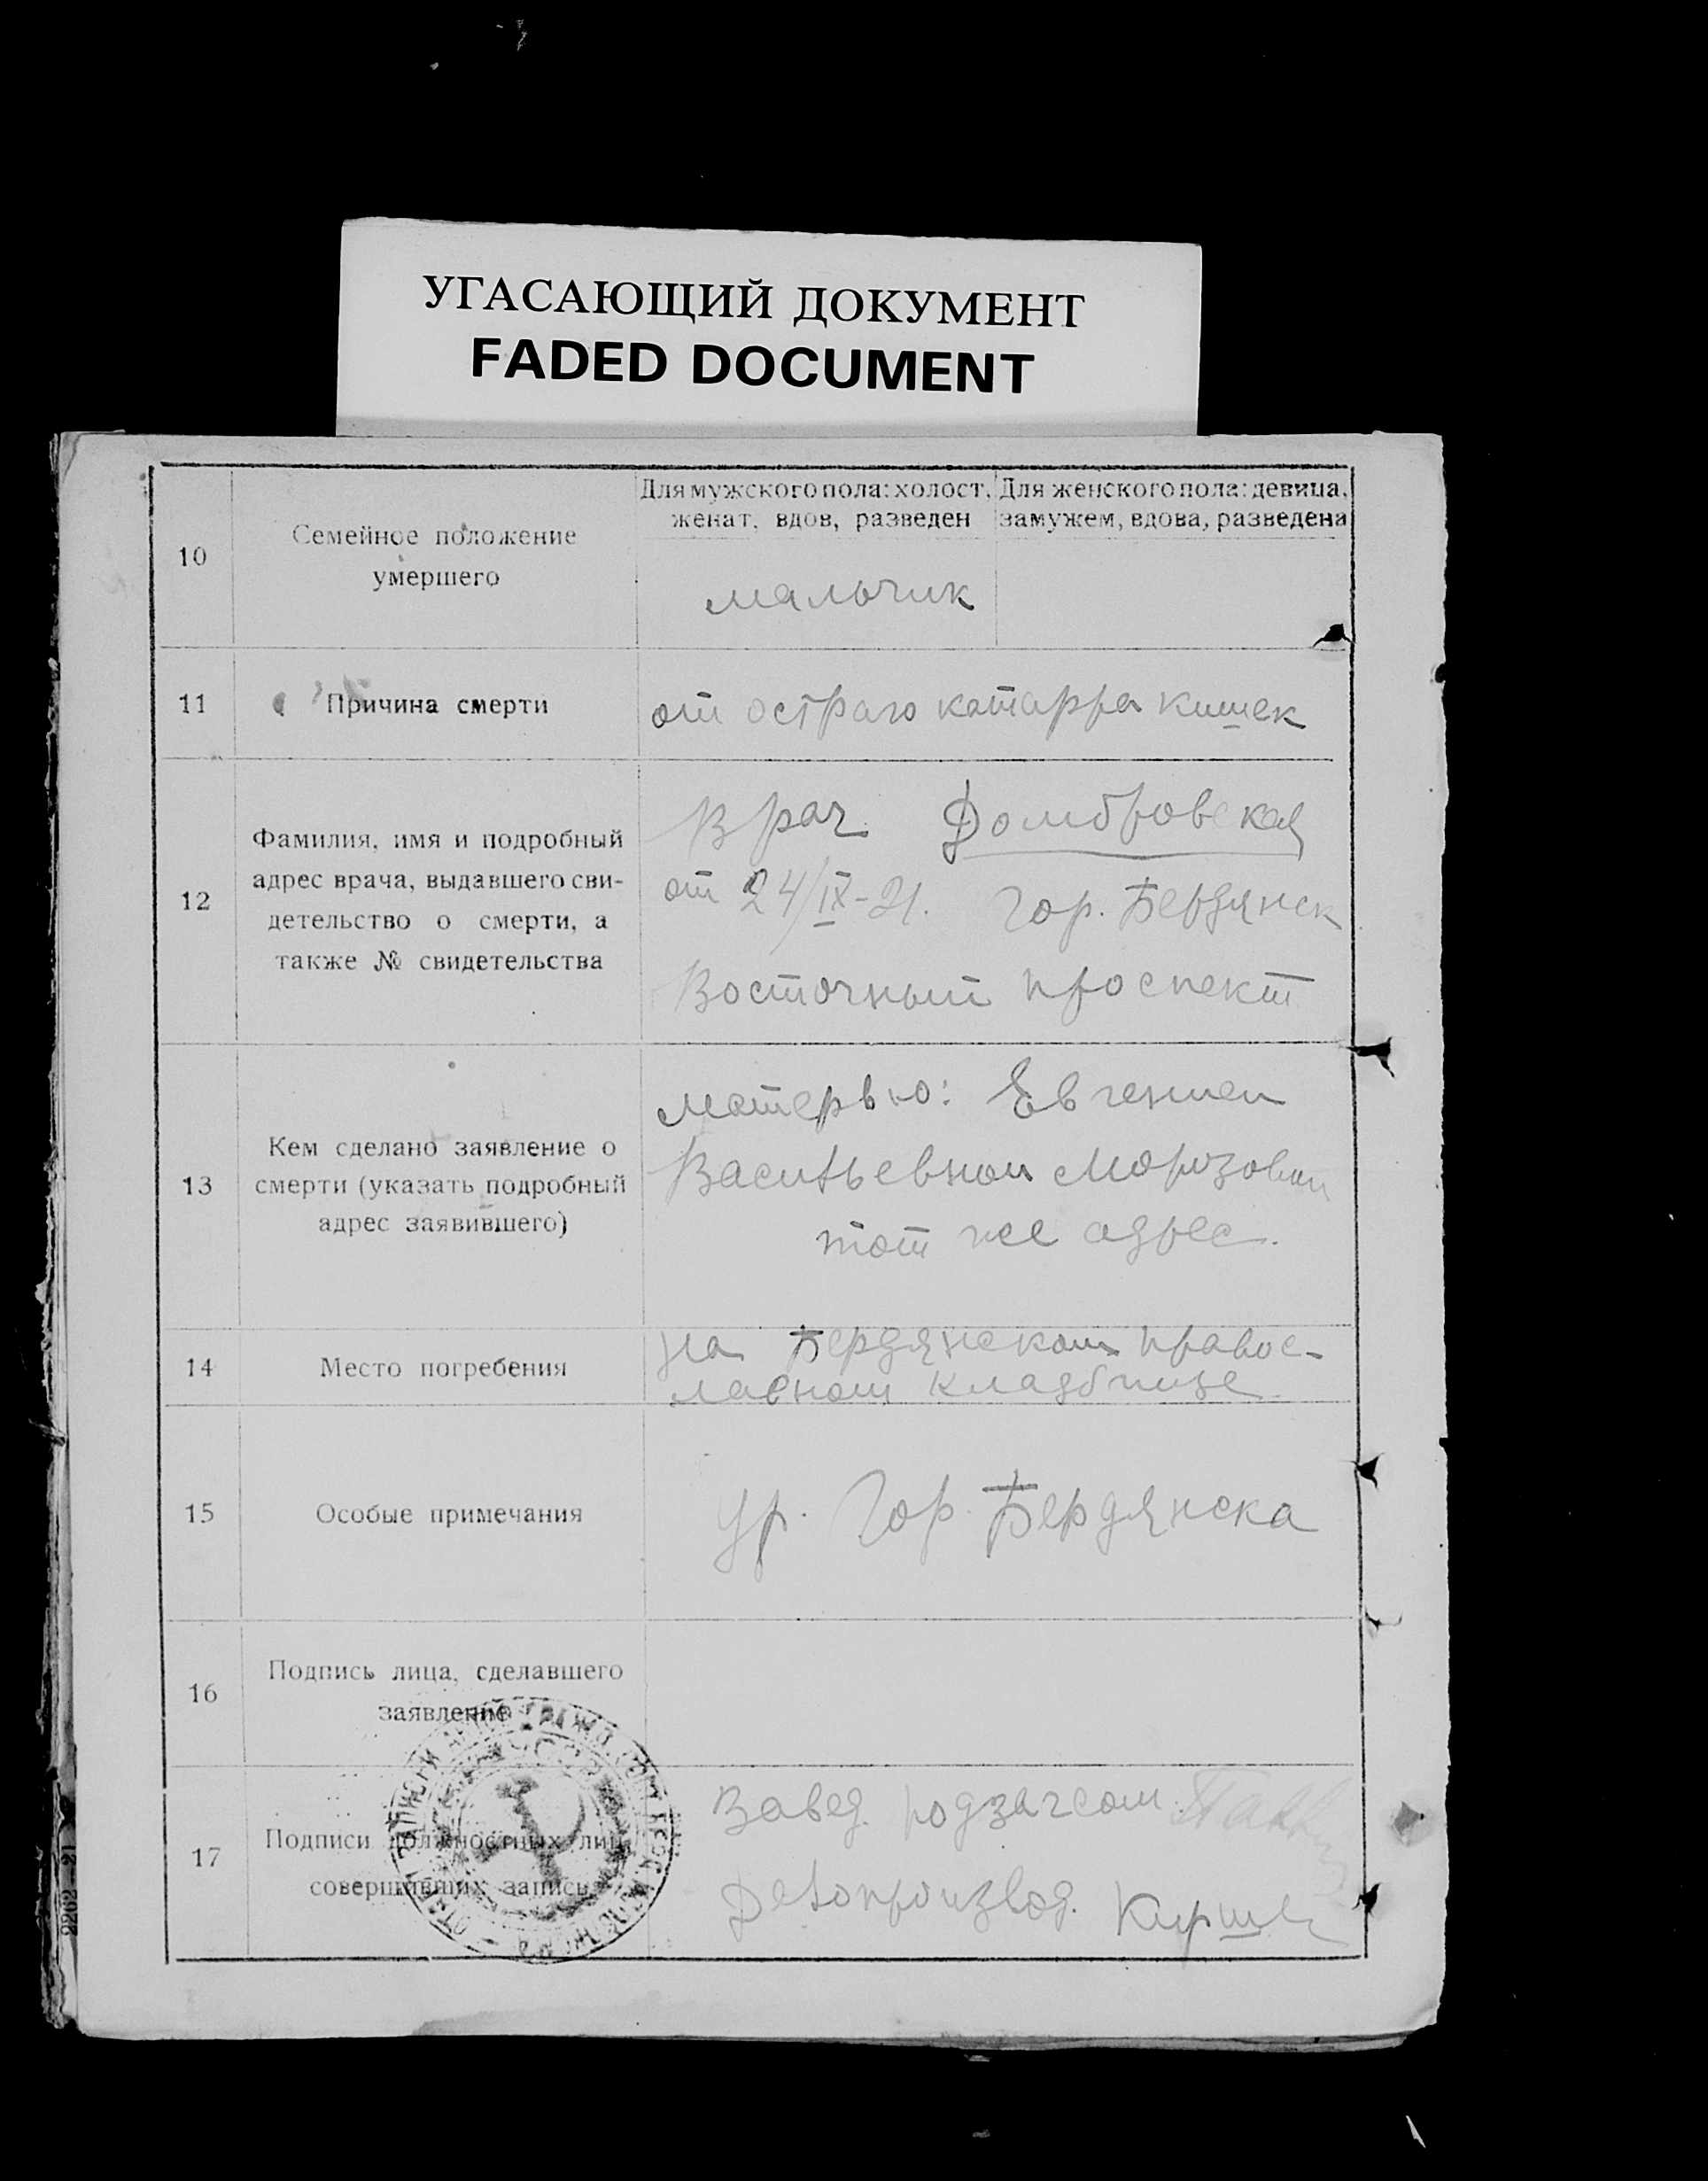 УГАСАЮЩИЙ ДОКУМЕНТ
FADED DOCUMENT
10
Семейное положение
умершего
Для мужского пола: холост,
женат, вдов, разведен
Для женского пола: девица,
замужем, вдова, разведена
мальчик
11
Причина смерти
от остраго катарра кишек
12
Фамилия, имя и подробный
адрес врача, выдавшего сви-
детельство о смерти, а
также № свидетельства
Врач Домбровская
от 24/IX-21. гор. Бердянск
Восточный проспект
13
Кем сделано заявление о
смерти (указать подробный
адрес заявившего)
матерью: Евгенией
Васильевной Морозовой
тот же адрес.
14
Место погребения
на Бердянском правос-
лавном кладбище
15
Особые примечания
ур. гор. Бердянска
16
Подпись лица, сделавшего
заявление
17
Подписи должностных лиц,
совершивших запись
Завед. подзагсом
Делопроизвод.
2262—21